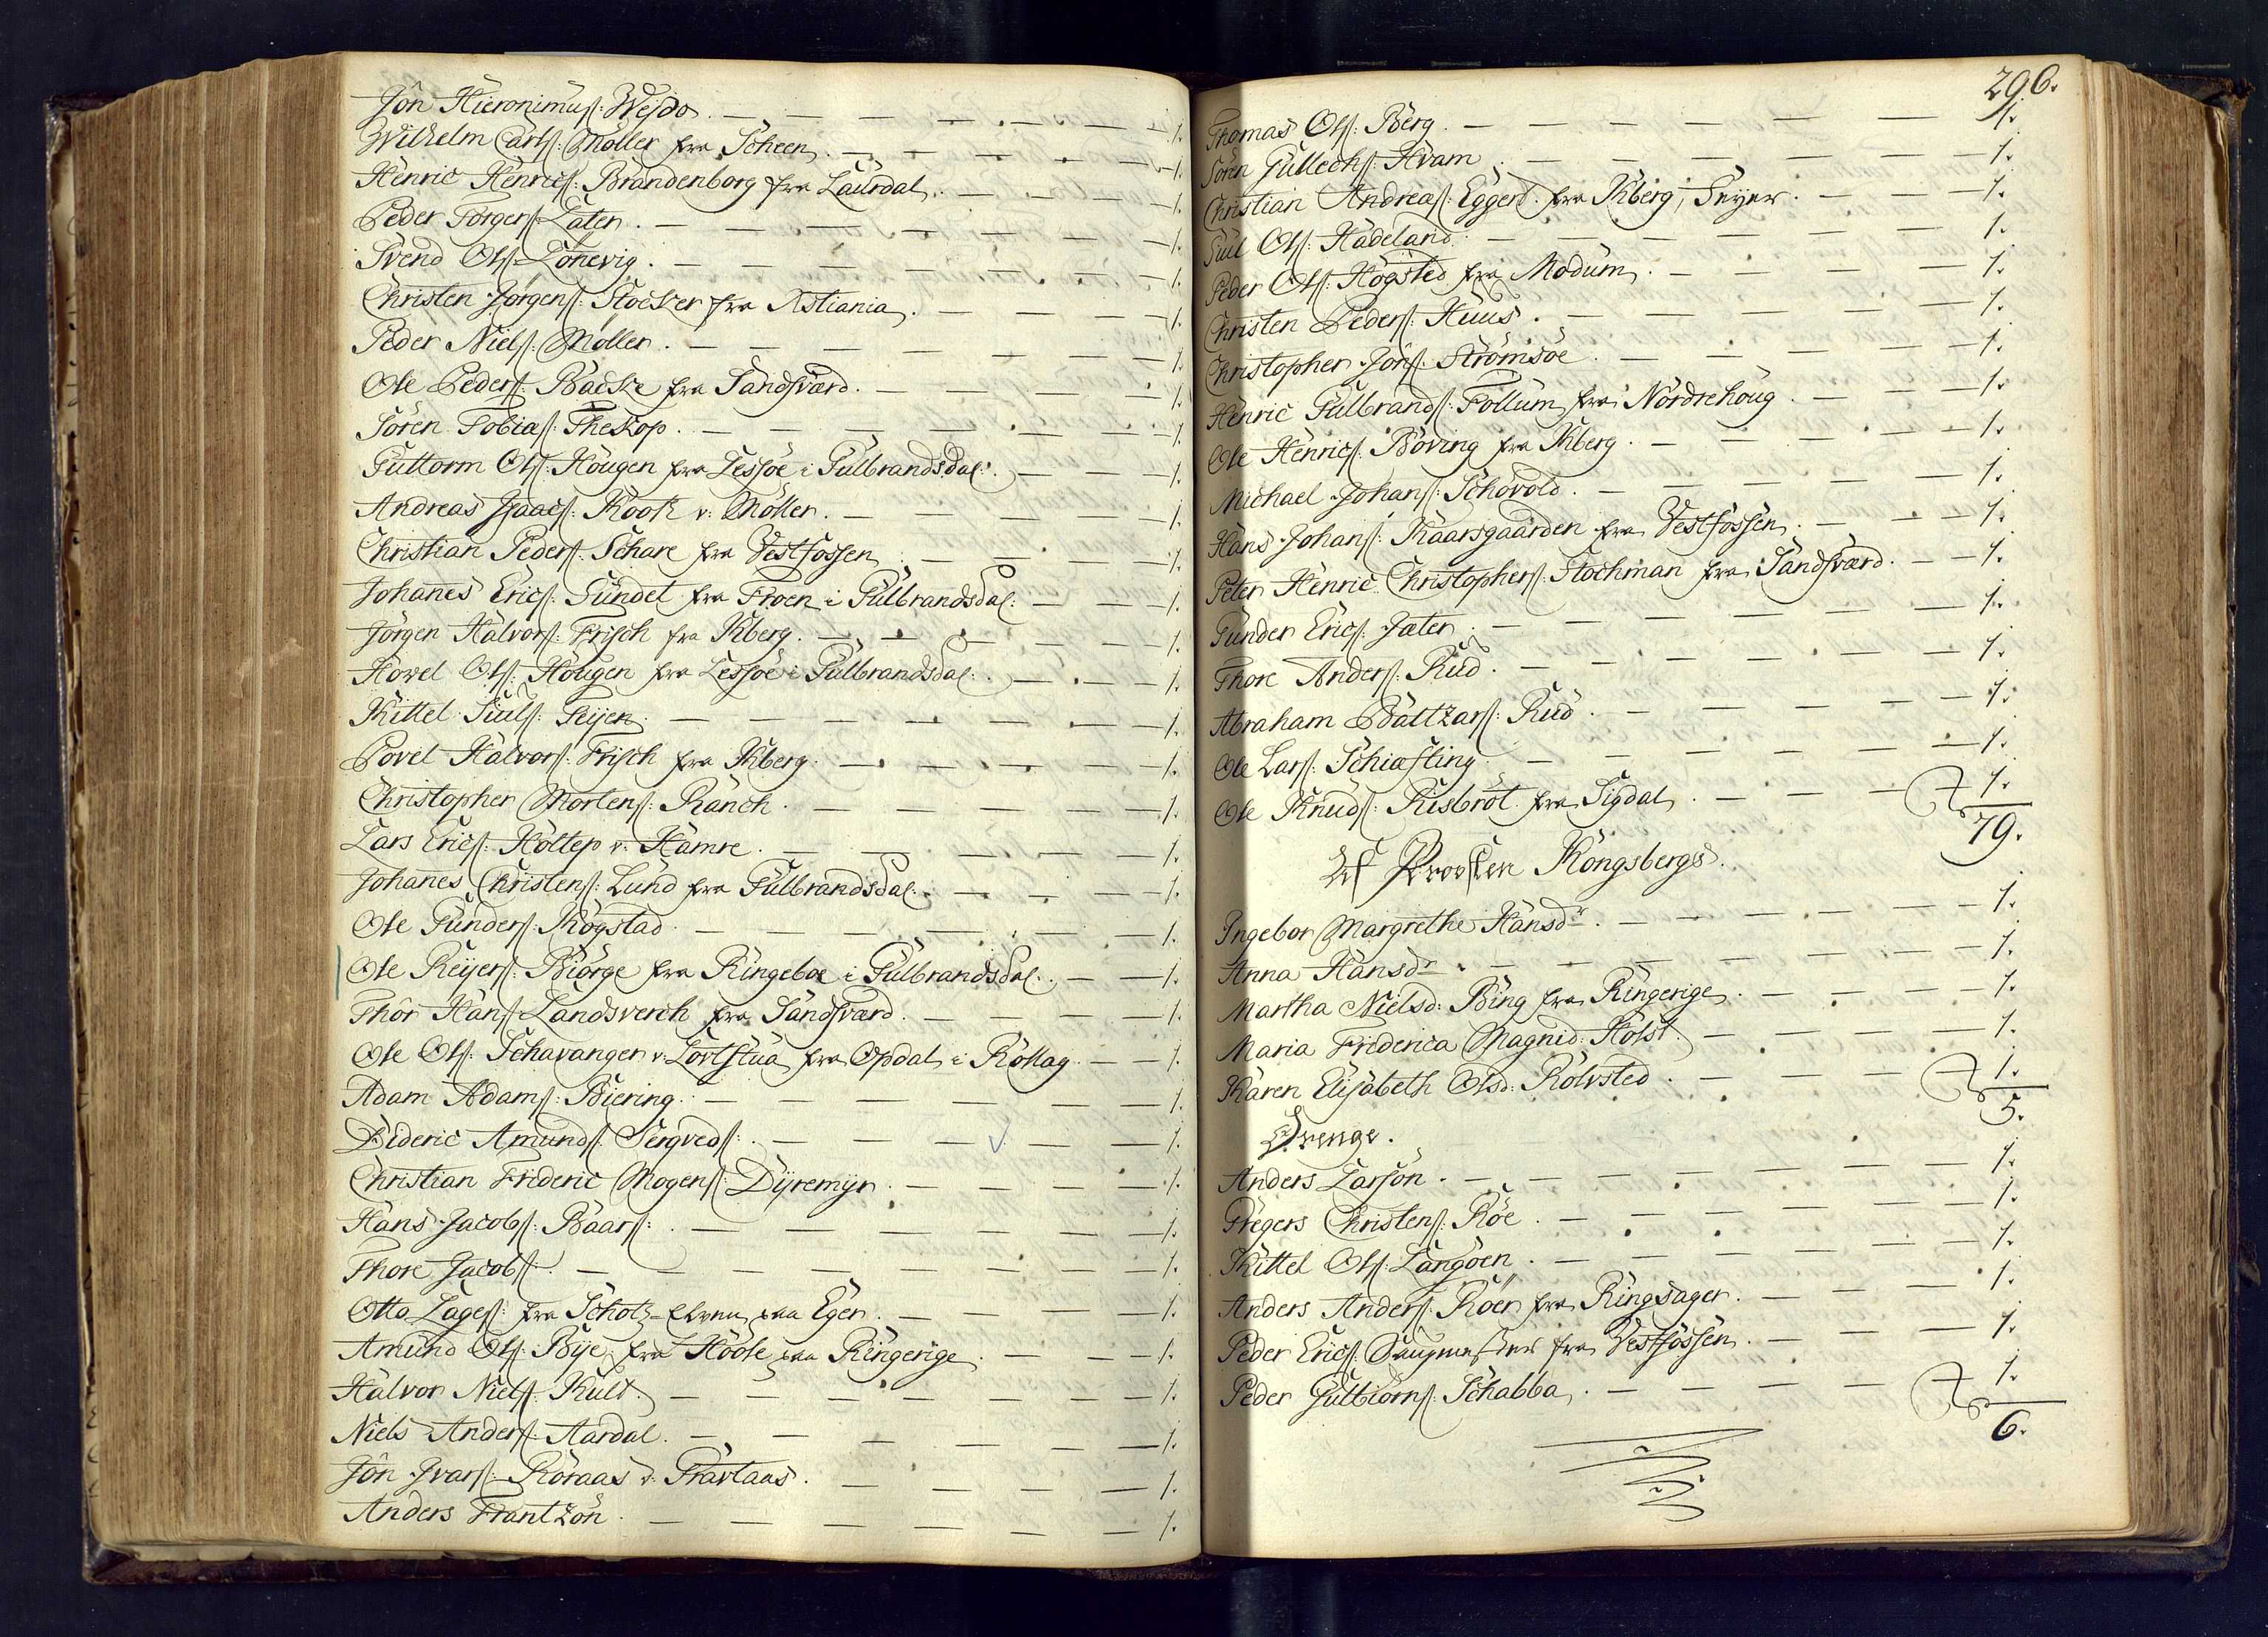 Jön Hieronimusſ: Wejdo. 1.
Wilhelm Carlſ: Møller fra Scheen. 1.
Henric Henricſ: Brandenborg fra Laurdal. 1.
Peder Torgerſ: Later. 1.
Svend Olſ: Lönevig. 1.
Christen Jørgenſ: Stocker fra Xstiania. 1.
Peder Nielſ: Møller. 1.
Ole Pederſ: Backe fra Sandſværd. 1.
Søren Tobiaſ: Theskop. 1.
Guttorm Olſ: Hougen fra Lessøe i Gulbrandsdal: 1.
Andreas Isaacſ: Koch v: Møller. 1.
Christian Pederſ: Schare fra Vestfossen 1.
Johanes Ericſ: Sundet fra Froen i Gulbrandsdal: 1.
Jørgen Halvorſ: Frisch fra Kberg. 1.
Hovel Olſ: Hougen fra Lessøe i Gulbrandsdal: 1.
Kittel Siulſ: Feyen. 1.
Povel Halvorſ: Frisch fra Kberg. 1.
Christopher Mortenſ: Ranch. 1.
Lars Ericſ: Holtep v: Hamre. 1.
Johanes Christenſ: Lund fra Gulbrandsdal: 1.
Ole Gunderſ: Kogstad. 1.
Ole Reyerſ: Biørge fra Ringeboe i Gulbrandsdal: 1.
Thor Hanſ: Landsverch fra Sandſværd. 1.
Ole Olſ: Schavanger v: Lortstua fra Opdal i Rollag. 1.
Adam Adamſ: Biering. 1.
Dideric Amundſ: Sergvedſ: 1.
Christian Frideric Mogenſ: Dyremyr. 1.
Hans Jacobſ: Baarſ: 1.
Thore Jacobſ: 1.
Otto Lageſ: fra Schotz-Elven paa Eger. 1.
Amund Olſ: Bye fra Hoole paa Ringerige. 1.
Halvor Nielſ: Kult. 1.
Niels Anderſ: Aardal. 1.
Jön Ivarſ: Røraas v: Travlaas. 1.
Anders Frantzøn. 1.
296.
Thomas Olſ: Berg. 1.
Søren Gullechſ: Hvam. 1.
Christian Andreaſ: Eggert fra Kberg, Seyer. 1.
Siul Olſ: Hadeland. 1.
Peder Olſ: Høgsted fra Modum. 1.
Christen Pederſ: Huus. 1.
Christopher Jonſ: Strømsøe. 1.
Henric Gulbrandſ: Follum fra Nordrehoug. 1.
Ole Henricſ: Boving fra Kberg. 1.
Michael Johanſ: Schovold. 1.
Hans Johanſ: Kaarsgaarden fra Vestfossen. 1.
Peter Henric Christopherſ: Stochman fra Sandſværd. 1.
Gunder Ericſ: Jater. 1.
Thore Anderſ: Rud. 1.
Abraham Baltzarſ: Rud. 1.
Ole Larſ: Schiæfting. 1.
Ole Knudſ: Risbrot fra Sigdal. 1.
79.
Kongsbergs.
Ingebor Margrethe Hansdr. 1.
Anna Hansdr. 1.
Martha Nielsd: Bing fra Ringerige. 1.
Maria Friderica Magnid: Holst. 1.
Karen Elisabeth Olsd: Rolvsted. 1.
5.
Drenge.
Anders Larsøn. 1.
Gregers Christenſ: Røe. 1.
Kittel Olſ: Langøen. 1.
Anders Anderſ: Røen fra Ringsager. 1.
Peder Ericſ: Saugmester fra Vestfossen. 1.
Peder Gulbiörnſ: Schabba. 1.
6.